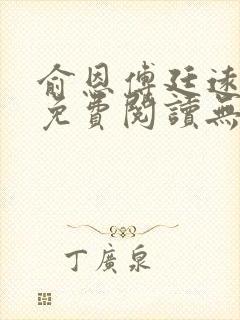 俞恩傅廷遠
免費閱讀無
丁廣泉